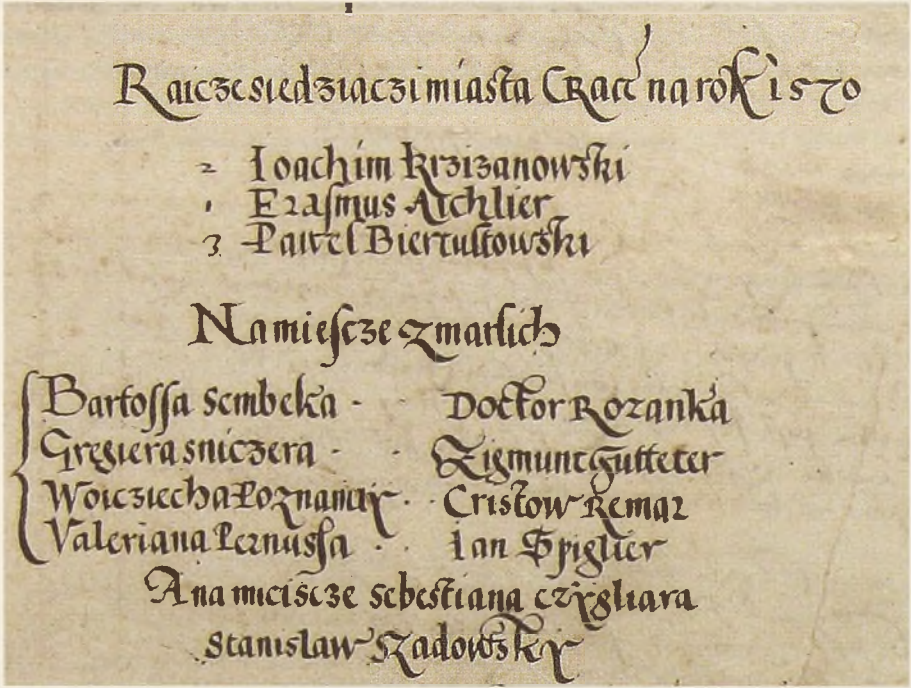 Raiczesiedziaczi miasta Crac na rok 1570
2 Ioachim Krzizanowski
1 Erasmus Aichlier
3 Pawel Biertultowski
Na miescze zmarlich
Bartossa Sembeka Doctor Rozanka
Gregiera sniczera Zigmunt Gutteter
Woicziecha Poznanczyk Cristow Remar
Valeriana Pernussa Ian Spiglier
A na miescze sebestiana czygliara
Stanislaw Szadowsky